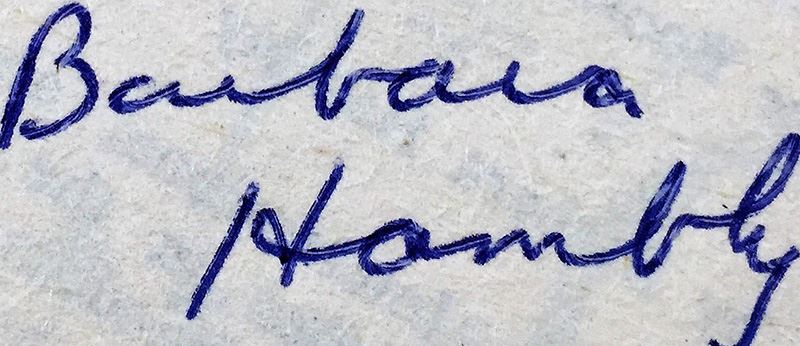 Barbara
Hambly